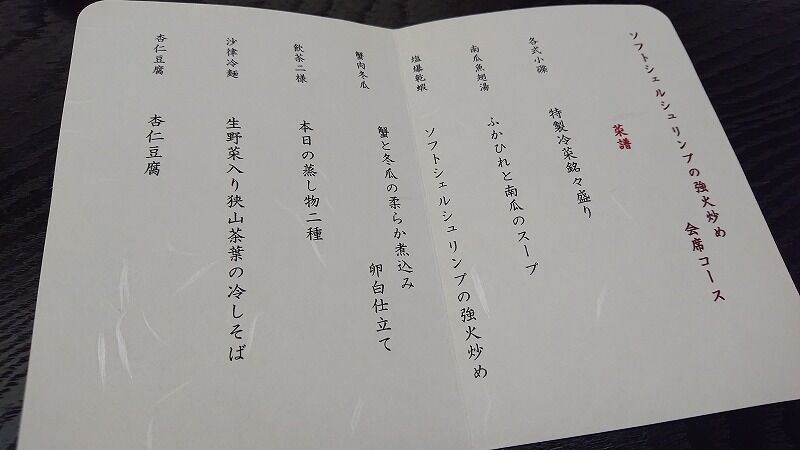 ソフトシェルシュリンプの強火炒め
会席コース
菜譜
各式小碟
特製冷菜銘々盛り
南瓜魚翅湯
ふかひれと南瓜のスープ
塩爆乾蝦
ソフトシェルシュリンプの強火炒め
蟹肉冬瓜
蟹と冬瓜の柔らか煮込み
卵白仕立て
飲茶二様
本日の蒸し物二種
沙律冷麺
生野菜入り狭山茶葉の冷しそば
杏仁豆腐
杏仁豆腐